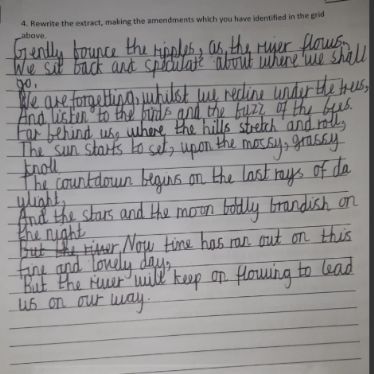 4. Rewrite the extract, making the amendments which you have identified in the grid
above.
Gently bounce the ripples, as, the river flows,
We sit back and speculate about where we shall
go,
We are forgetting, whilst we recline under the trees,
And listen to the birds and the buzz of the bees.
Far behind us, where the hills stretch and roll,
The sun starts to set, upon the mossy, grassy
knoll
The countdown begins on the last rays of da
ylight,
And the stars and the moon boldly brandish on
the night
But the river Now time has ran out on this
fine and lonely day,
But the river will keep on flowing to lead
us on our way.